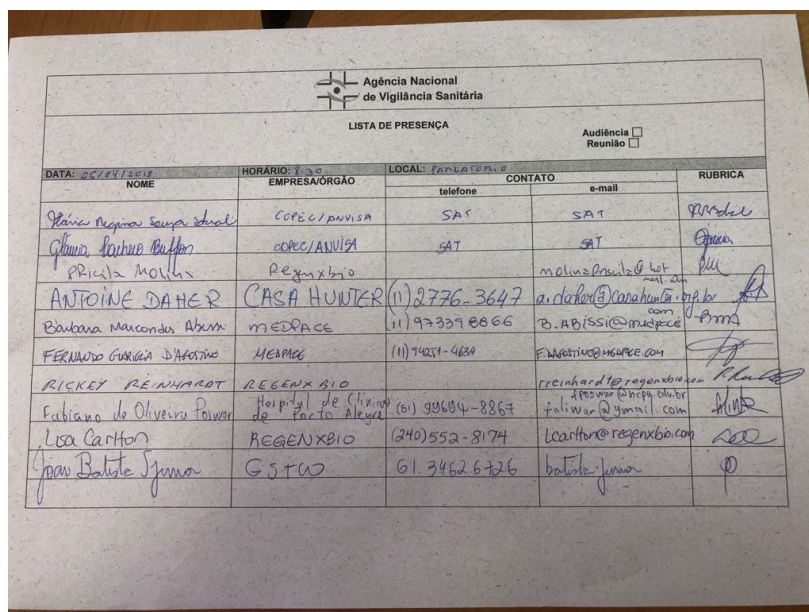 Agência Nacional
de Vigilância Sanitária
LISTA DE PRESENÇA
Audiência
Reunião
DATA: 06/04/2019 HORÁRIO: 8:30 LOCAL: PARLATORIO
NOME EMPRESA/ÓRGÃO CONTATO RUBRICA
telefone e-mail
Regina Souza COPEC/ANVISA SAT SAT
Pacheco Buffon COPEC/ANVISA SAT SAT
PRicila Molina Regenxbio
ANTOINE DAHER CASA HUNTER (11) 2776-3647 a.daher@casahunter.org.br
Bárbara Marcondes MEDPACE (11) 973398866 B.ABISSI@medpace.com
FERNANDO D'AGOSTINO MEDPACE (11) 94251-4634
RICKEY REINHARDT REGENXBIO rreinhardt@regenxbio.com
Fabiano de Oliveira Poswar Hospital de Clínicas de Porto Alegre (51) 99694-8867 fposwar@hcpa.edu.br
Lisa Carlton REGENXBIO (240) 552-8174 Lcarlton@regenxbio.com
Joao Batista S Junior 61. 34626726 batista.junior